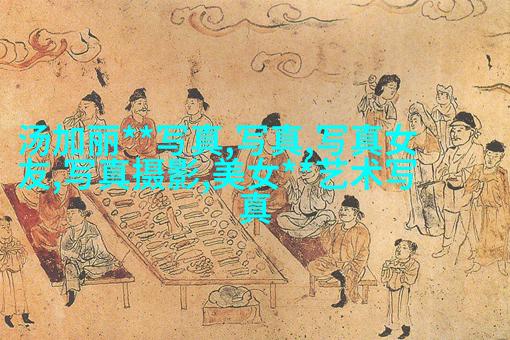 汤加丽**写真,写真,写真女
友,写真摄影,美女**艺术写
真